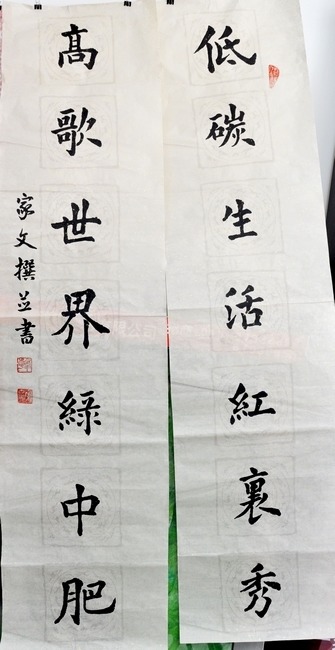 低碳生活紅裏秀
髙歌世界綠中肥
家文撰並書